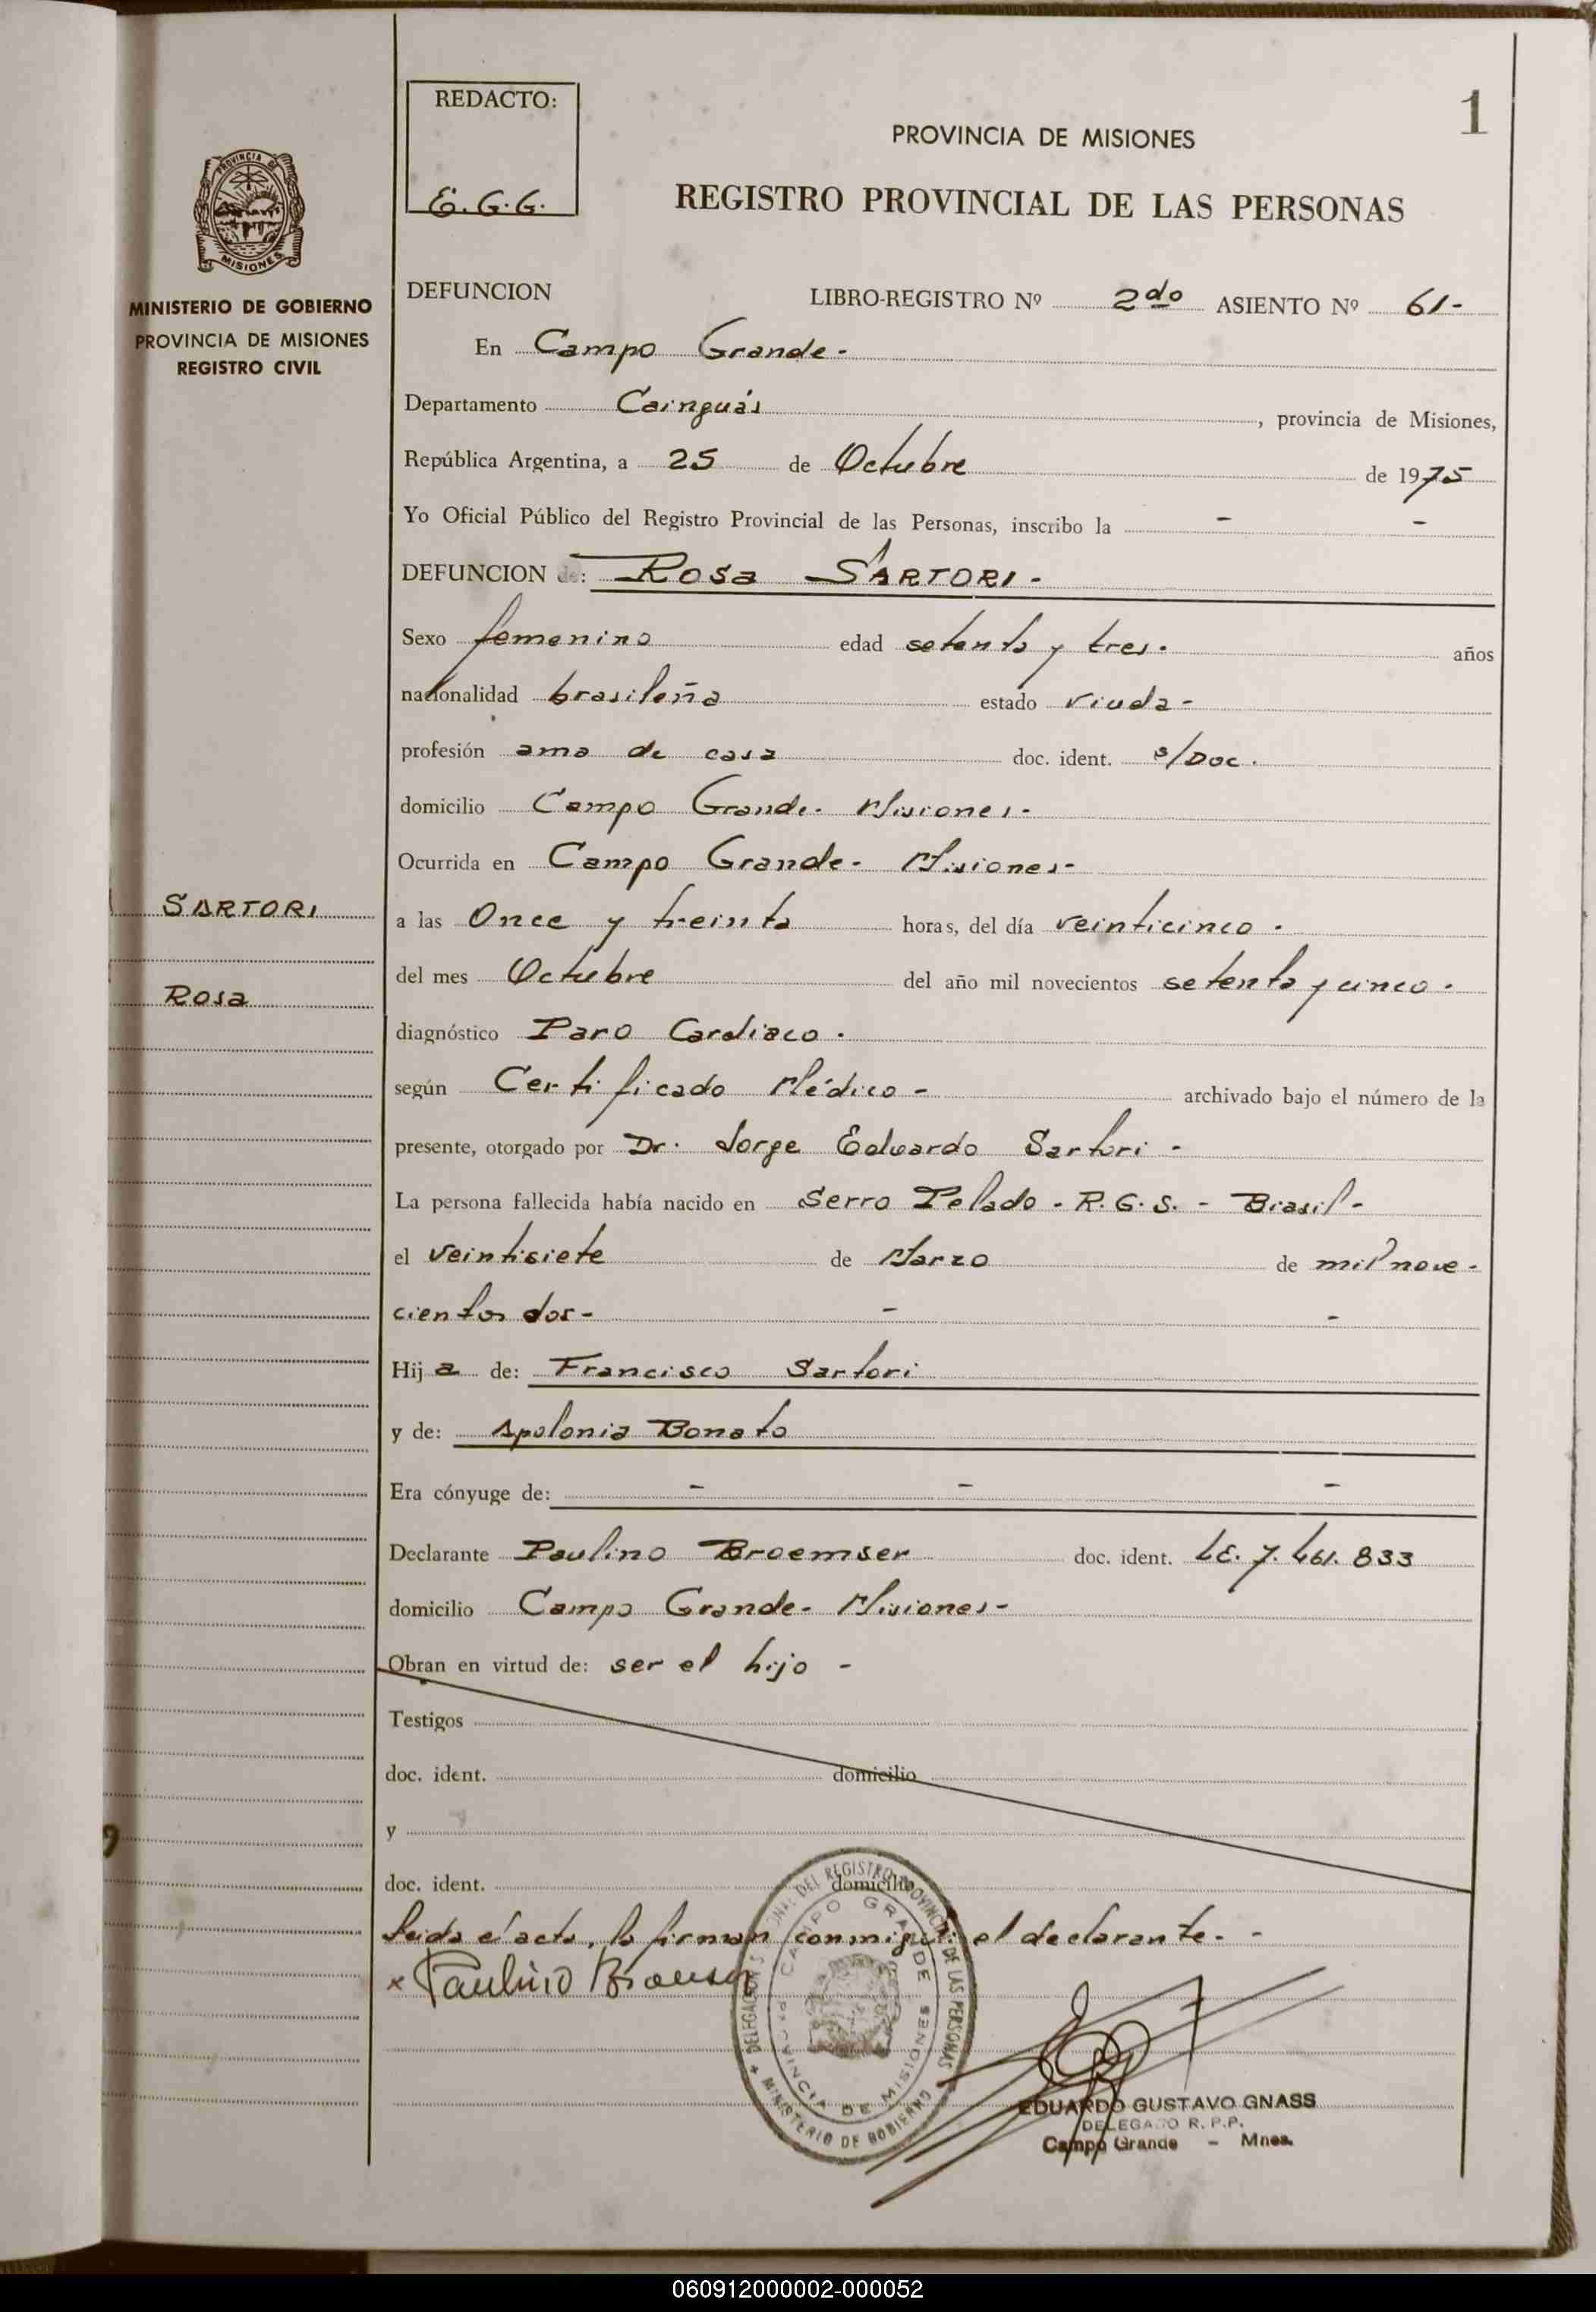 REDACTO:
E.G.G.
1
PROVINCIA DE MISIONES
REGISTRO PROVINCIAL DE LAS PERSONAS
PROVINCIA DE
MISIONES
MINISTERIO DE GOBIERNO
PROVINCIA DE MISIONES
REGISTRO CIVIL
DEFUNCION LIBRO-REGISTRO Nº 2do ASIENTO Nº 61-
En Campo Grande-
Departamento Cainguás, provincia de Misiones,
República Argentina, a 25 de Octubre de 1975
Yo Oficial Público del Registro Provincial de las Personas, inscribo la - -
DEFUNCION de: Rosa SARTORI-
Sexo femenino edad setenta y tres. años
nacionalidad brasileña estado viuda-
profesión ama de casa doc. ident. s/Doc.
domicilio Campo Grande- Misiones-
Ocurrida en Campo Grande- Misiones-
SARTORI
Rosa
a las Once y treinta horas, del día veinticinco.
del mes Octubre del año mil novecientos setenta y cinco.
diagnóstico Paro Cardiaco.
según Certificado Médico- archivado bajo el número de la
presente, otorgado por Dr. Jorge Eduardo Sartori-
La persona fallecida había nacido en Serro Pelado - R.G.S. - Brasil-
el veintisiete de Marzo de mil nove-
cientos dos- - -
Hij a de: Francisco Sartori
y de: Apolonia Bonato
Era cónyuge de: - - -
Declarante Paulino Broemser doc. ident. LE. 7.461.833
domicilio Campo Grande- Misiones-
Obran en virtud de: ser el hijo -
Testigos
doc. ident. domicilio
y
doc. ident. domicilio
Leida el acta, la firman conmigo: el declarante.- -
x Paulino
DEL REGISTRO PROVINCIAL DE LAS PERSONAS
MINISTERIO DE GOBIERNO
CAMPO GRANDE
PROVINCIA DE MISIONES
EDUARDO GUSTAVO GNASS
DELEGADO R.P.P.
Campo Grande - Mnes.
060912000002-000052